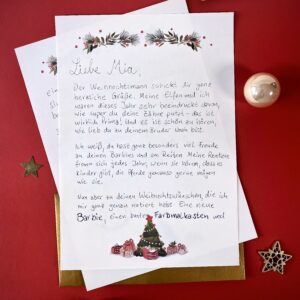 Liebe Mia,
Der Weihnachtsmann schickt dir ganz
herzliche Grüße. Meine Elfen und ich
waren dieses Jahr sehr beeindruckt davon,
wie super du deine Zähne putzt - das ist
wirklich prima! Und es ist schön zu hören,
wie lieb du zu deinem Bruder Noah bist.
Ich weiß, du hast ganz besonders viel Freude
an deinen Barbies und am Reiten. Meine Rentiere
freuen sich jedes Jahr, wenn sie hören, dass es
Kinder gibt, die Pferde genauso gerne mögen
wie sie.
Nun aber zu deinen Weihnachtswünschen, die ich
mir ganz genau notiert habe: Eine neue
Barbie, einen bunten Farbmalkasten und